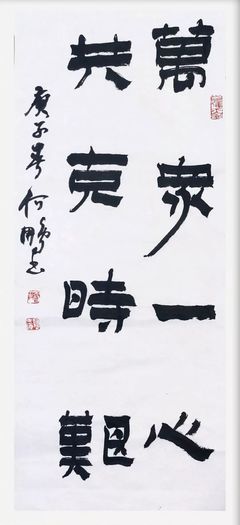 萬衆一心
共克時艱
庚子春何鵬书